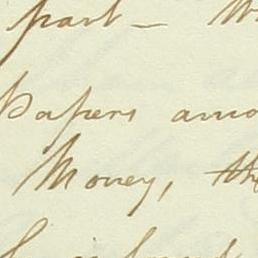 part — W
Papers amo
Money, the